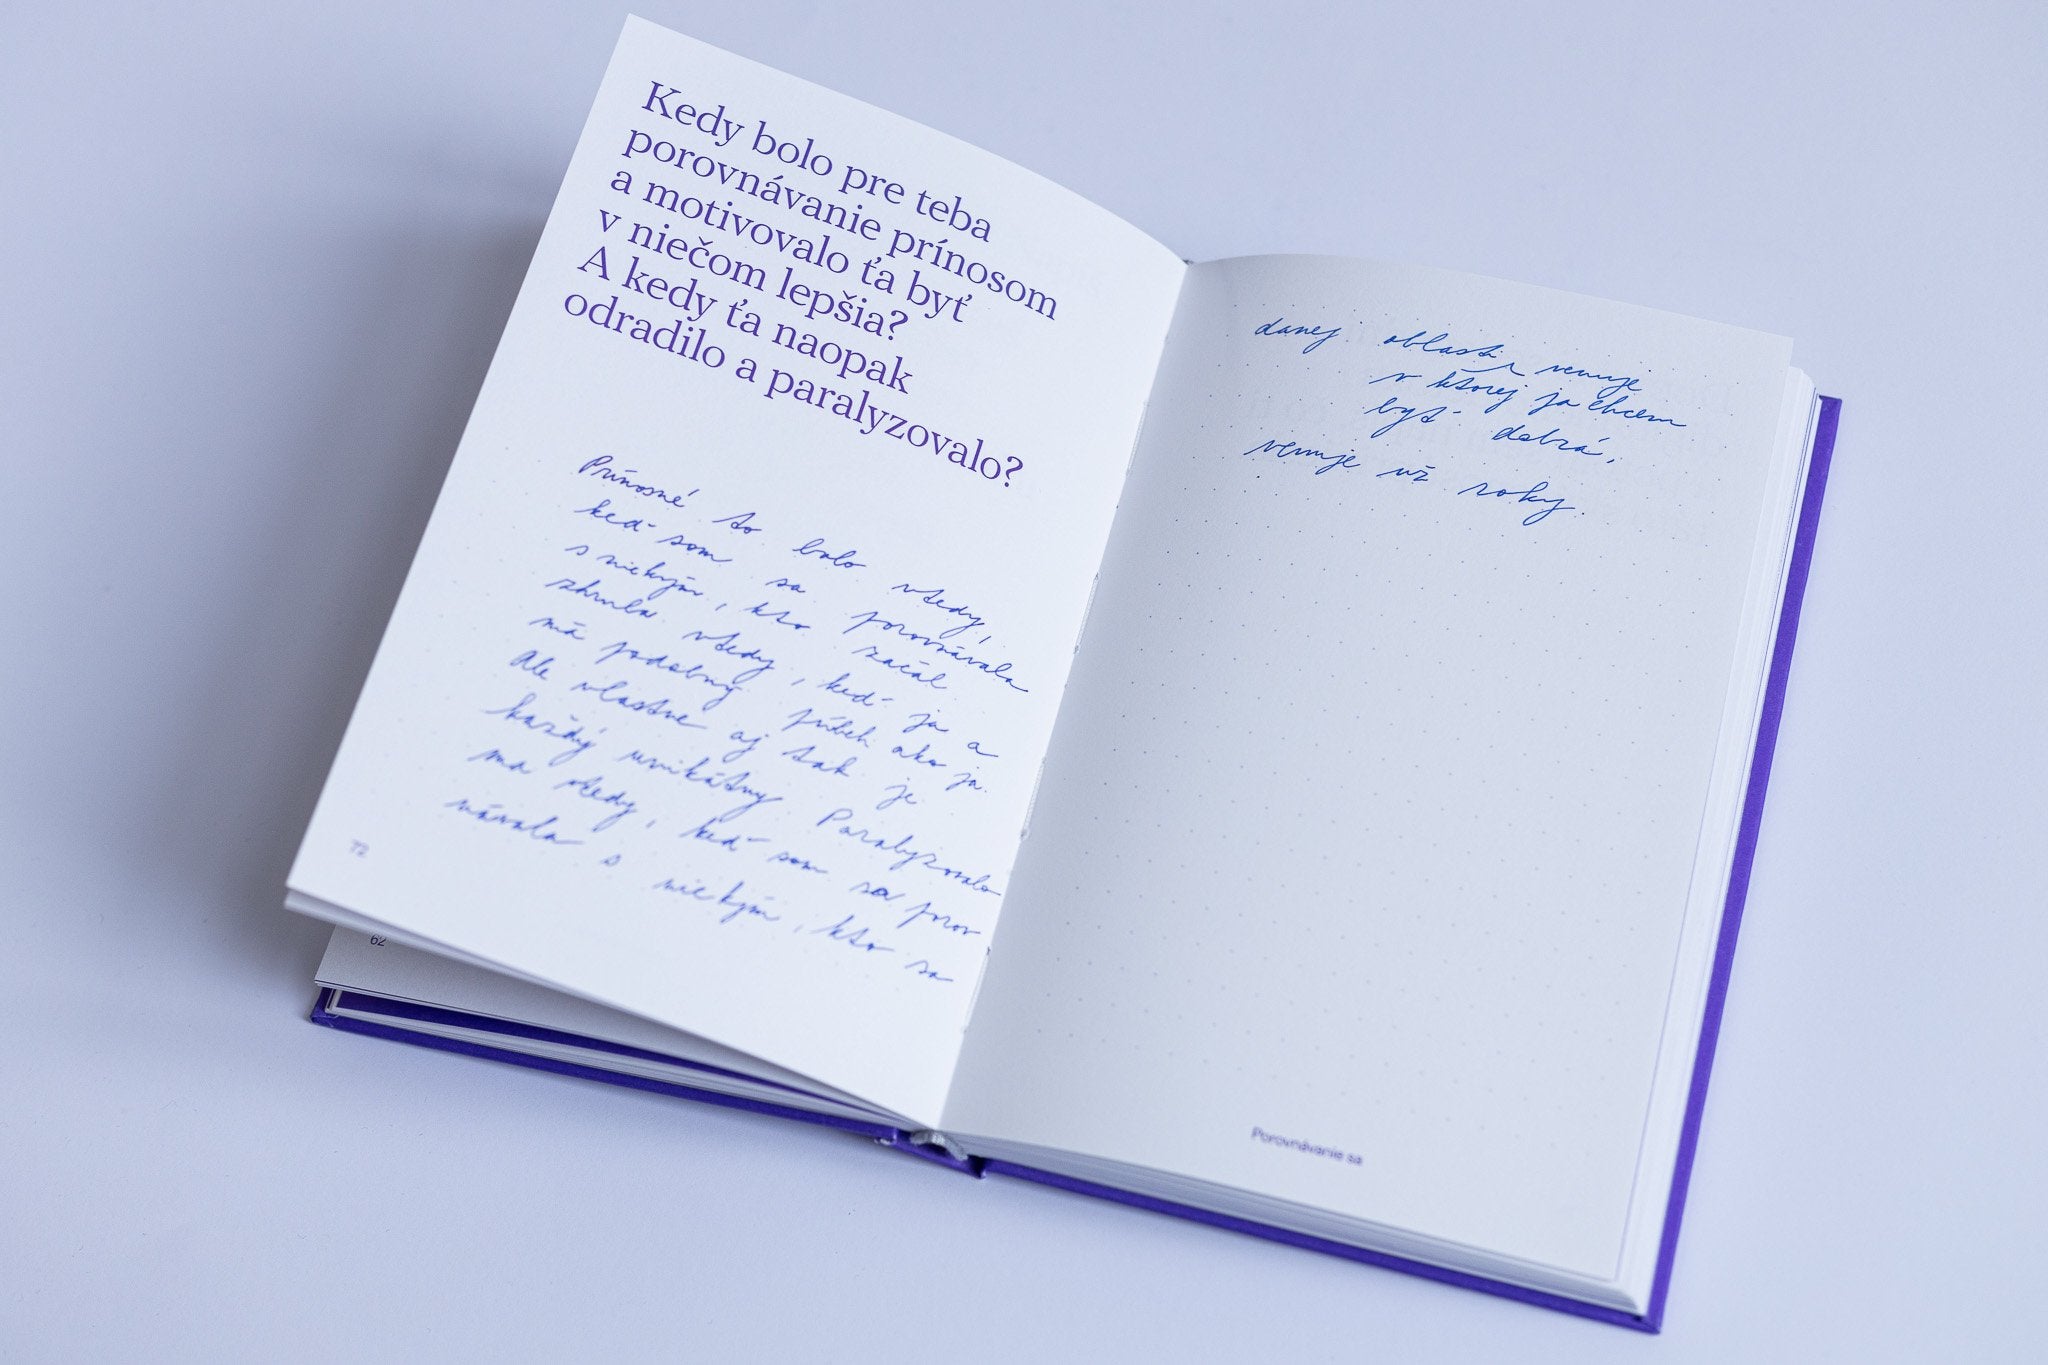 Kedy bolo pre teba
porovnávanie prínosom
a motivovalo ťa byť
v niečom lepšia?
A kedy ťa naopak
odradilo a paralyzovalo?
Prínosné to bolo vtedy,
keď som sa porovnávala
s niekým, kto začal
zhruba vtedy, keď ja a
má podobný príbeh ako ja.
Ale vlastne aj tak je
každý unikátny. Paralyzovalo
ma vtedy, keď som sa porov
návala s niekým, kto sa
72
62
danej oblasti venuje
v ktorej ja chcem
byť dobrá,
venuje už roky.
Porovnávanie sa